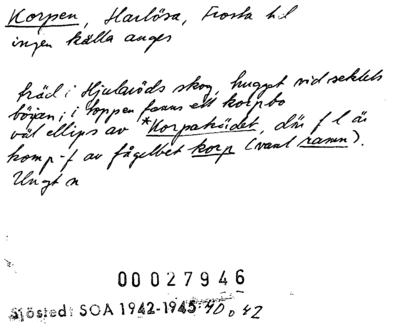 Korpen, Harlösa, Frosta hd
ingen källa anges
träd i Hjularöds skog, hugget vid seklets
början; i toppen fanns ett korpbo
väl ellips av *Korpaträdet, där f l är
komp-f av fågelbet korp (vanl ramn).
Ungt n
00027946
Sjöstedt SOA 1942-1945: 40, 42